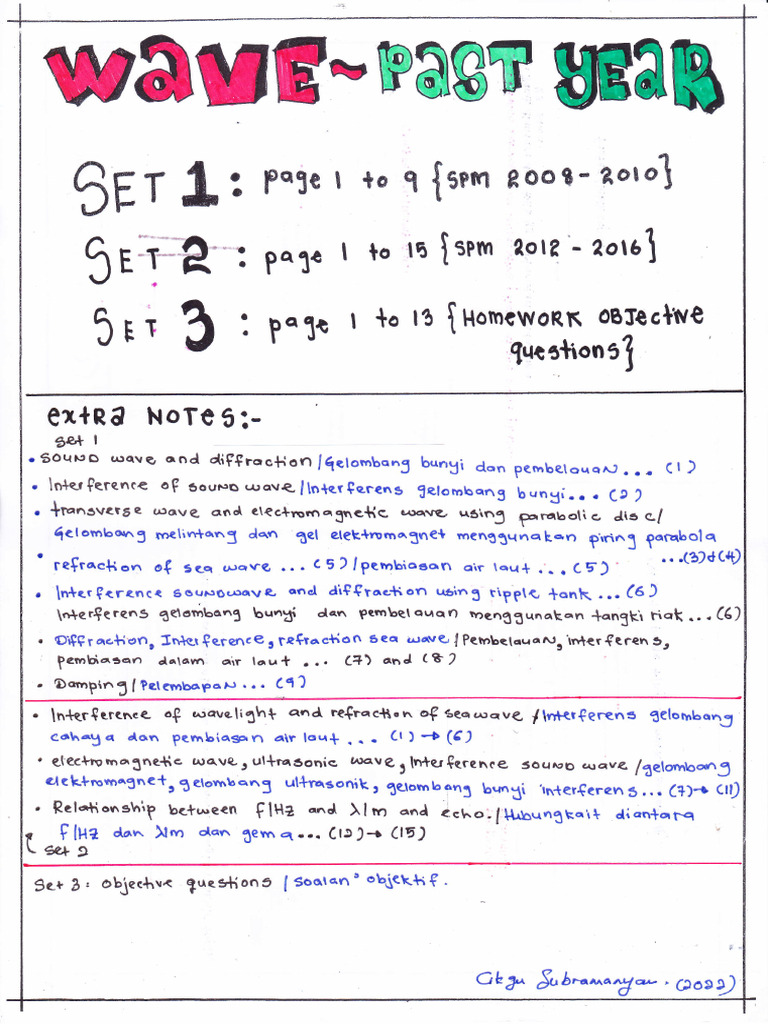 WAVE ~ PAST YEAR
SET 1 : page 1 to 9 {SPM 2008 - 2010}
SET 2 : page 1 to 15 {SPM 2012 - 2016}
SET 3 : page 1 to 13 {HOMEWORK OBJECTIVE
questions}
extra NOTES:-
set 1
• SOUND wave and diffraction/Gelombang bunyi dan pembelauan... (1)
• Interference of sound wave/Interferens gelombang bunyi... (2)
• transverse wave and electromagnetic wave using parabolic disc/
Gelombang melintang dan gel elektromagnet menggunakan piring parabola
...(3)d(4)
• refraction of sea wave ... (5)/pembiasan air laut ... (5)
• Interference soundwave and diffraction using ripple tank ... (6)
Interferens gelombang bunyi dan pembelauan menggunakan tangki riak ... (6)
• Diffraction, Interference, refraction sea wave/Pembelauan, interferens,
pembiasan dalam air laut ... (7) and (8)
• Damping/Pelembapan... (9)
• Interference of wavelight and refraction of seawave /Interferens gelombang
cahaya dan pembiasan air laut ... (1) → (6)
• electromagnetic wave, ultrasonic wave, Interference sound wave /gelombang
elektromagnet, gelombang ultrasonik, gelombang bunyi interferens... (7)→ (11)
• Relationship between f/Hz and λ/m and echo./Hubungkait diantara
f/Hz dan λ/m dan gema... (12)→ (15)
set 2
Set 3: objective questions / soalan² objektif.
Cikgu Subramanyan . (2022)